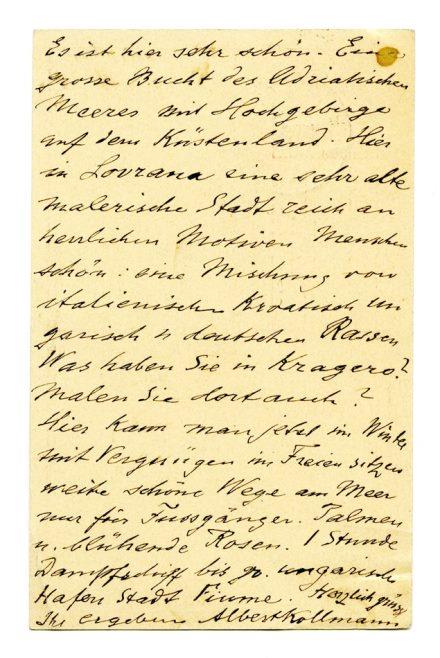 Es ist hier sehr schön. Eine
grosse Bucht des Adriatischen
Meeres mit Hochgebirge
auf dem Küstenland. Hier
in Lovrana eine sehr alte
malerische Stadt reich an
herrlichen Motiven Menschen
schön: eine Mischung von
italienisch Kroatisch un
garisch u deutschen Rassen
Was haben Sie in Kragerö?
Malen Sie dort auch?
Hier kann man jetzt im Winter
mit Vergnügen im Freien sitzen
weite schöne Wege am Meer
nur für Fussgänger. Palmen
u. blühende Rosen. 1 Stunde
Dampfschiff bis gr. ungarische
Hafen Stadt Fiume. Herzlich grüsst
Ihr ergeben Albert Kollmann